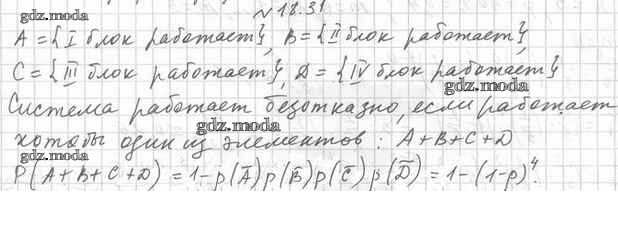 № 18.31
gdz.moda
A = {I блок работает}, B = {II блок работает},
C = {III блок работает}, D = {IV блок работает}
gdz.moda
gdz.moda
Система работает безотказно, если работает
gdz.moda
хотабы один из элементов: A+B+C+D
gdz.moda
P(A+B+C+D) = 1-p(A̅)p(B̅)p(C̅)p(D̅) = 1-(1-p)⁴.